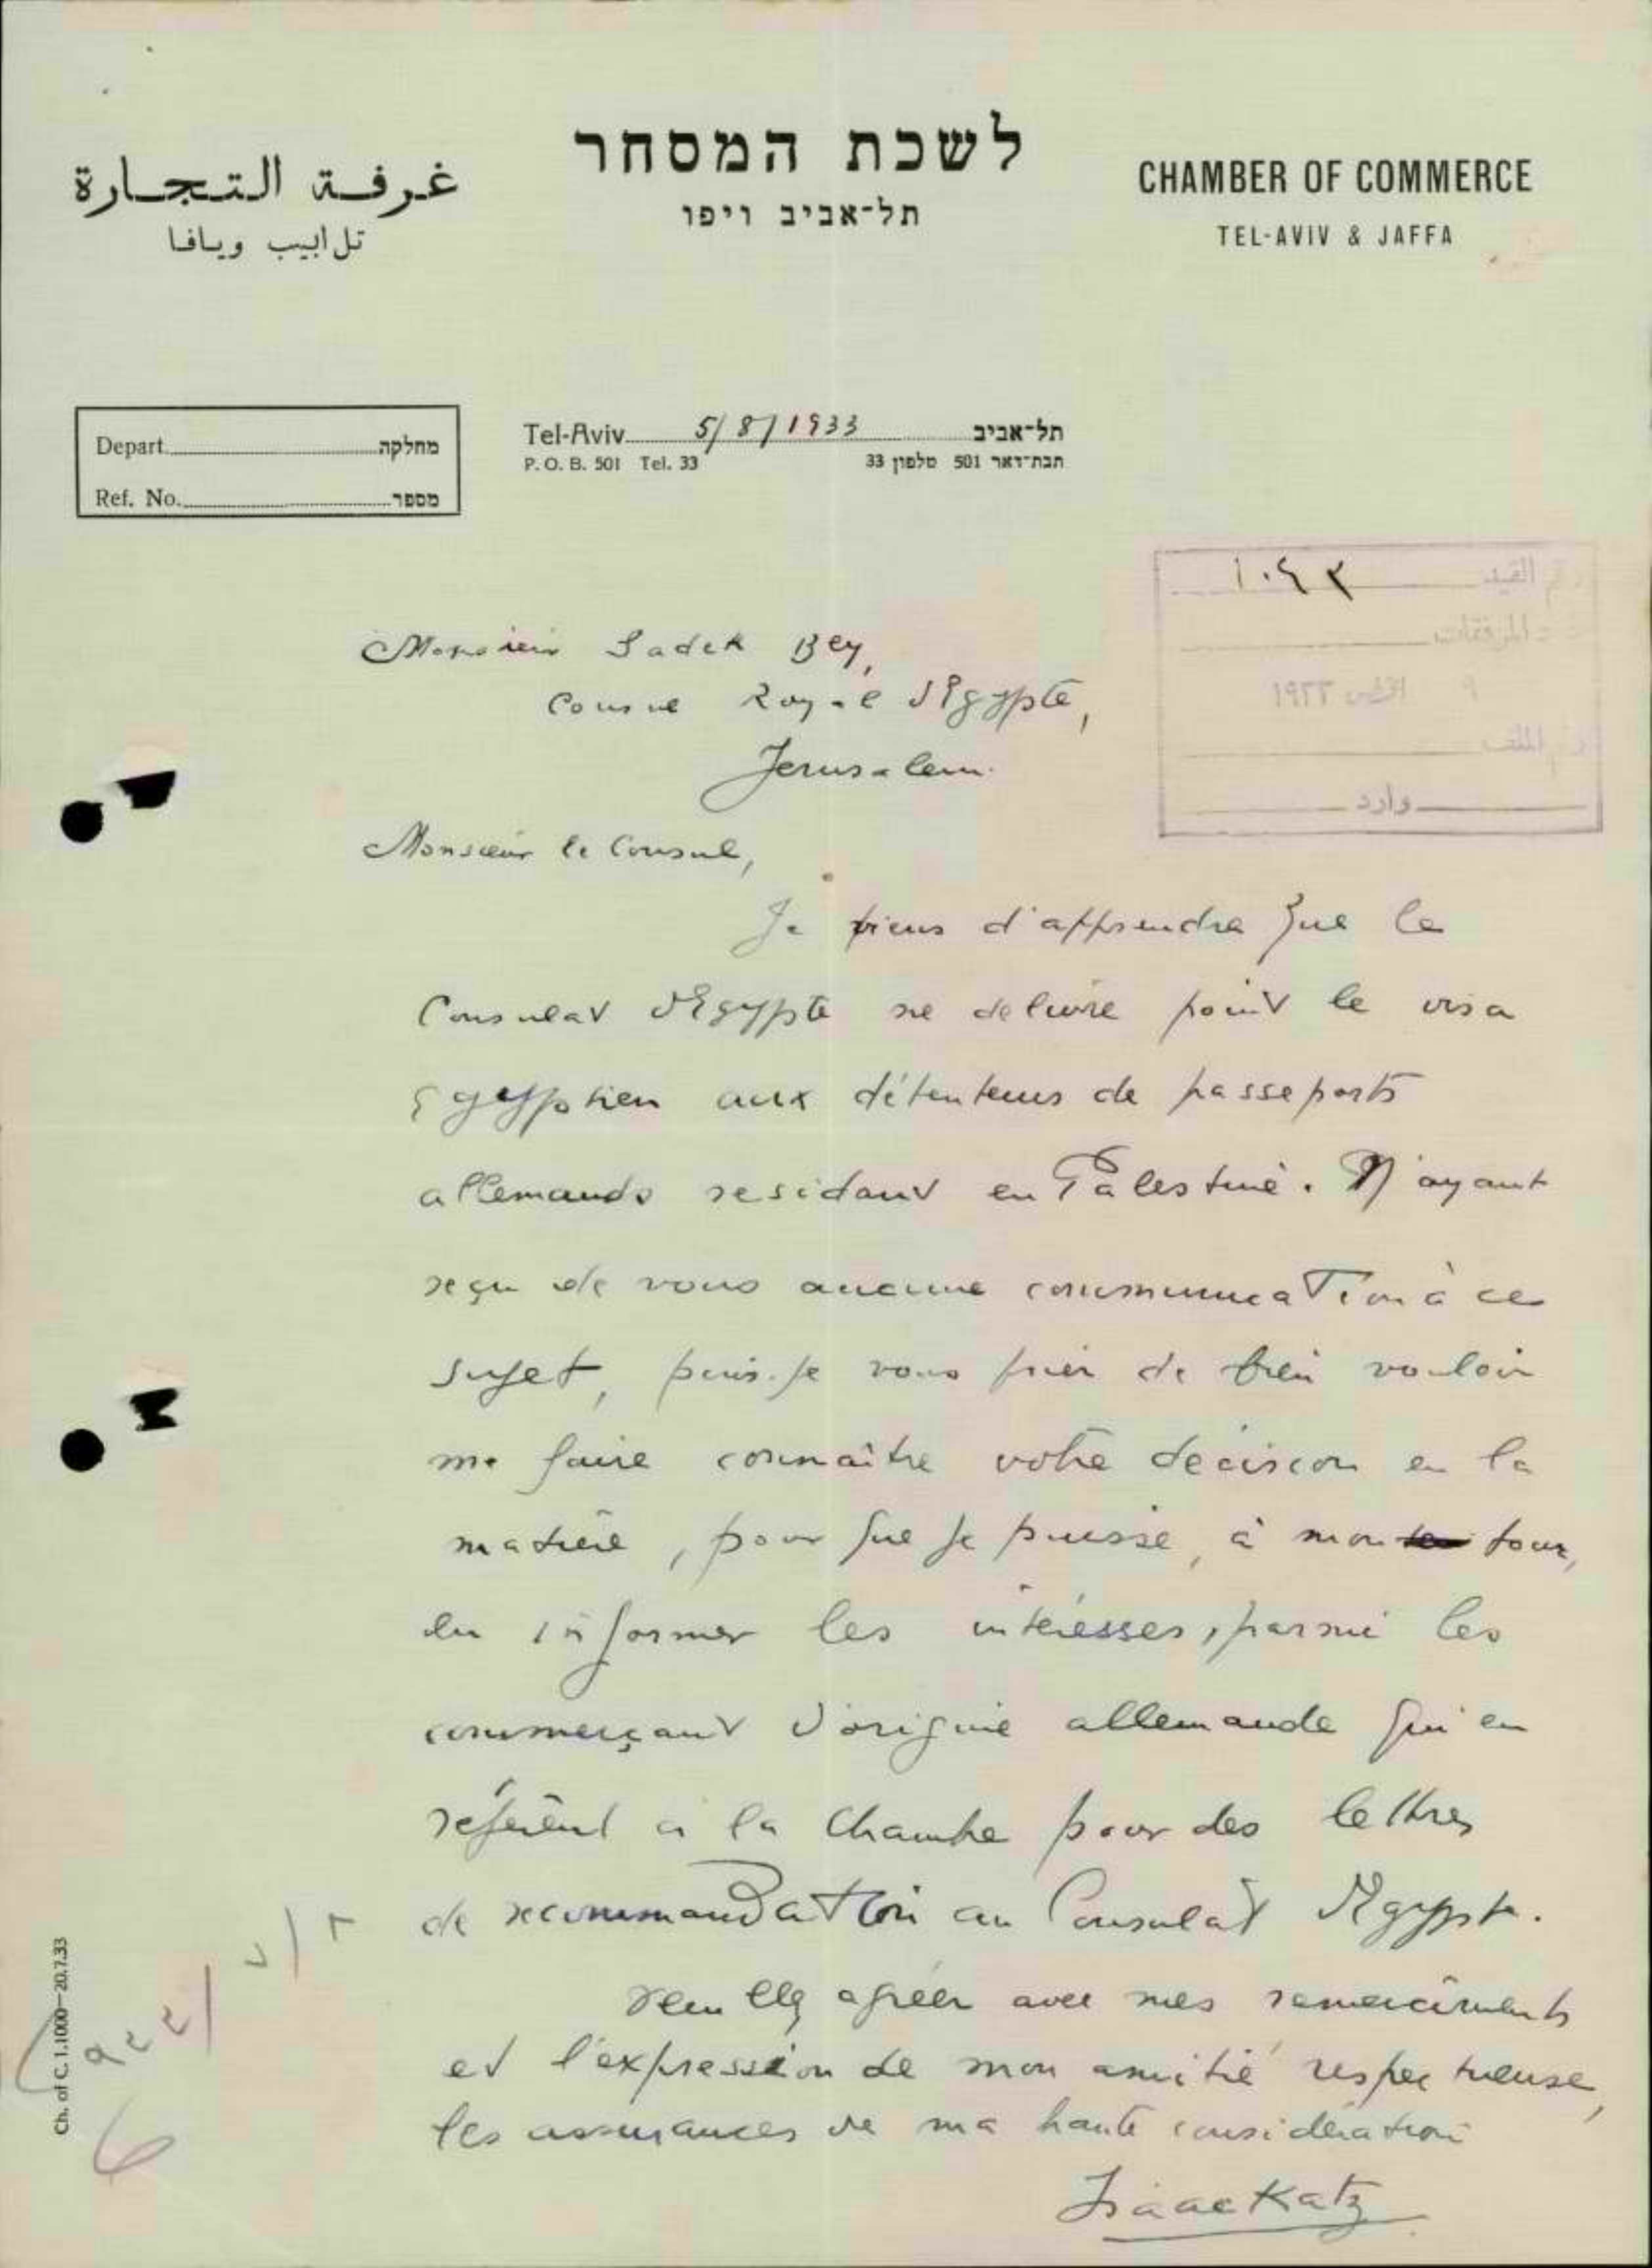 غرفة التجارة
تل ابيب ويافا
לשכת המסחר
תל-אביב ויפו
CHAMBER OF COMMERCE
TEL-AVIV & JAFFA
Depart. מחלקה
Ref. No. מספר
Tel-Aviv 5/8/1933 תל-אביב
P. O. B. 501 Tel. 33 תבת-דאר 501 טלפון 33
القيد ١٠٤٢
المرفقات
٩ اغسطس ١٩٣٣
الملف
وارد
Monsieur Sadek Bey,
Consul Royal d'Egypte,
Jerusalem.
Monsieur le Consul,
Je viens d'apprendre que le
Consulat d'Egypte ne delivre point le visa
Egyptien aux détenteurs de passeports
allemands residant en Palestine. N'ayant
reçu de vous aucune communication à ce
sujet, puis-je vous prier de bien vouloir
me faire connaître votre decision en la
matière, pour que je puisse, à mon tour,
en informer les intéressés, parmi les
commerçant d'origine allemande qui en
réfèrent à la Chambre pour des lettres
de recommandation au Consulat d'Egypte.
Veuillez agréer avec mes remerciments
et l'expression de mon amitié respectueuse,
les assurances de ma haute considération
Isaac Katz
Ch. of C. 1.1000—20.7.33